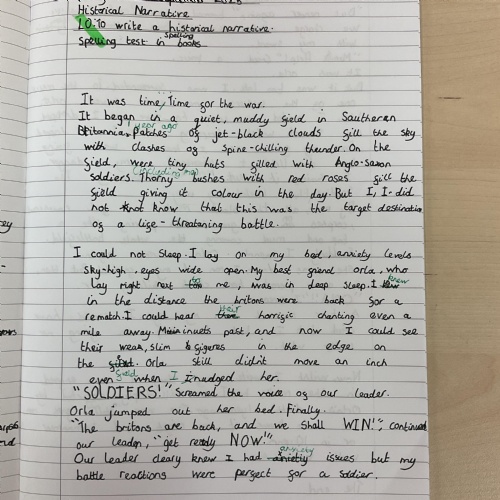 Historical Narrative
LO: To write a historical narrative.
spelling
Spelling test in books
It was time, Time for the war.
It began in a quiet, muddy field in Southeran
Britannia, 1 year ago Patches of jet-black clouds fill the sky
with clashes of spine-chilling thunder. On the
field, were tiny huts filled with Anglo-saxon
soldiers. (including me) Thorny bushes with red roses fill the
field giving it colour in the day. But I, I did
not know that this was the target destination
of a life-threataning battle.
I could not sleep. I lay on my bed, anxiety levels
sky-high, eyes wide open. My best friend orla, who
lay right next to me, was in deep sleep. I knew
in the distance the britons were back for a
rematch. I could hear their horrific chanting even a
mile away. Minuets past, and now I could see
their weak, slim figeres in the edge on
the field. Orla still didnt move an inch
even when I nudged her.
"SOLDIERS!" Screamed the voice of our leader.
Orla jumped out her bed. Finally.
"The britons are back, and we shall WIN!", continued
our leader, "get ready NOW!"
Our leader cleary knew I had anxiety issues but my
battle reactions were perfect for a soldier.